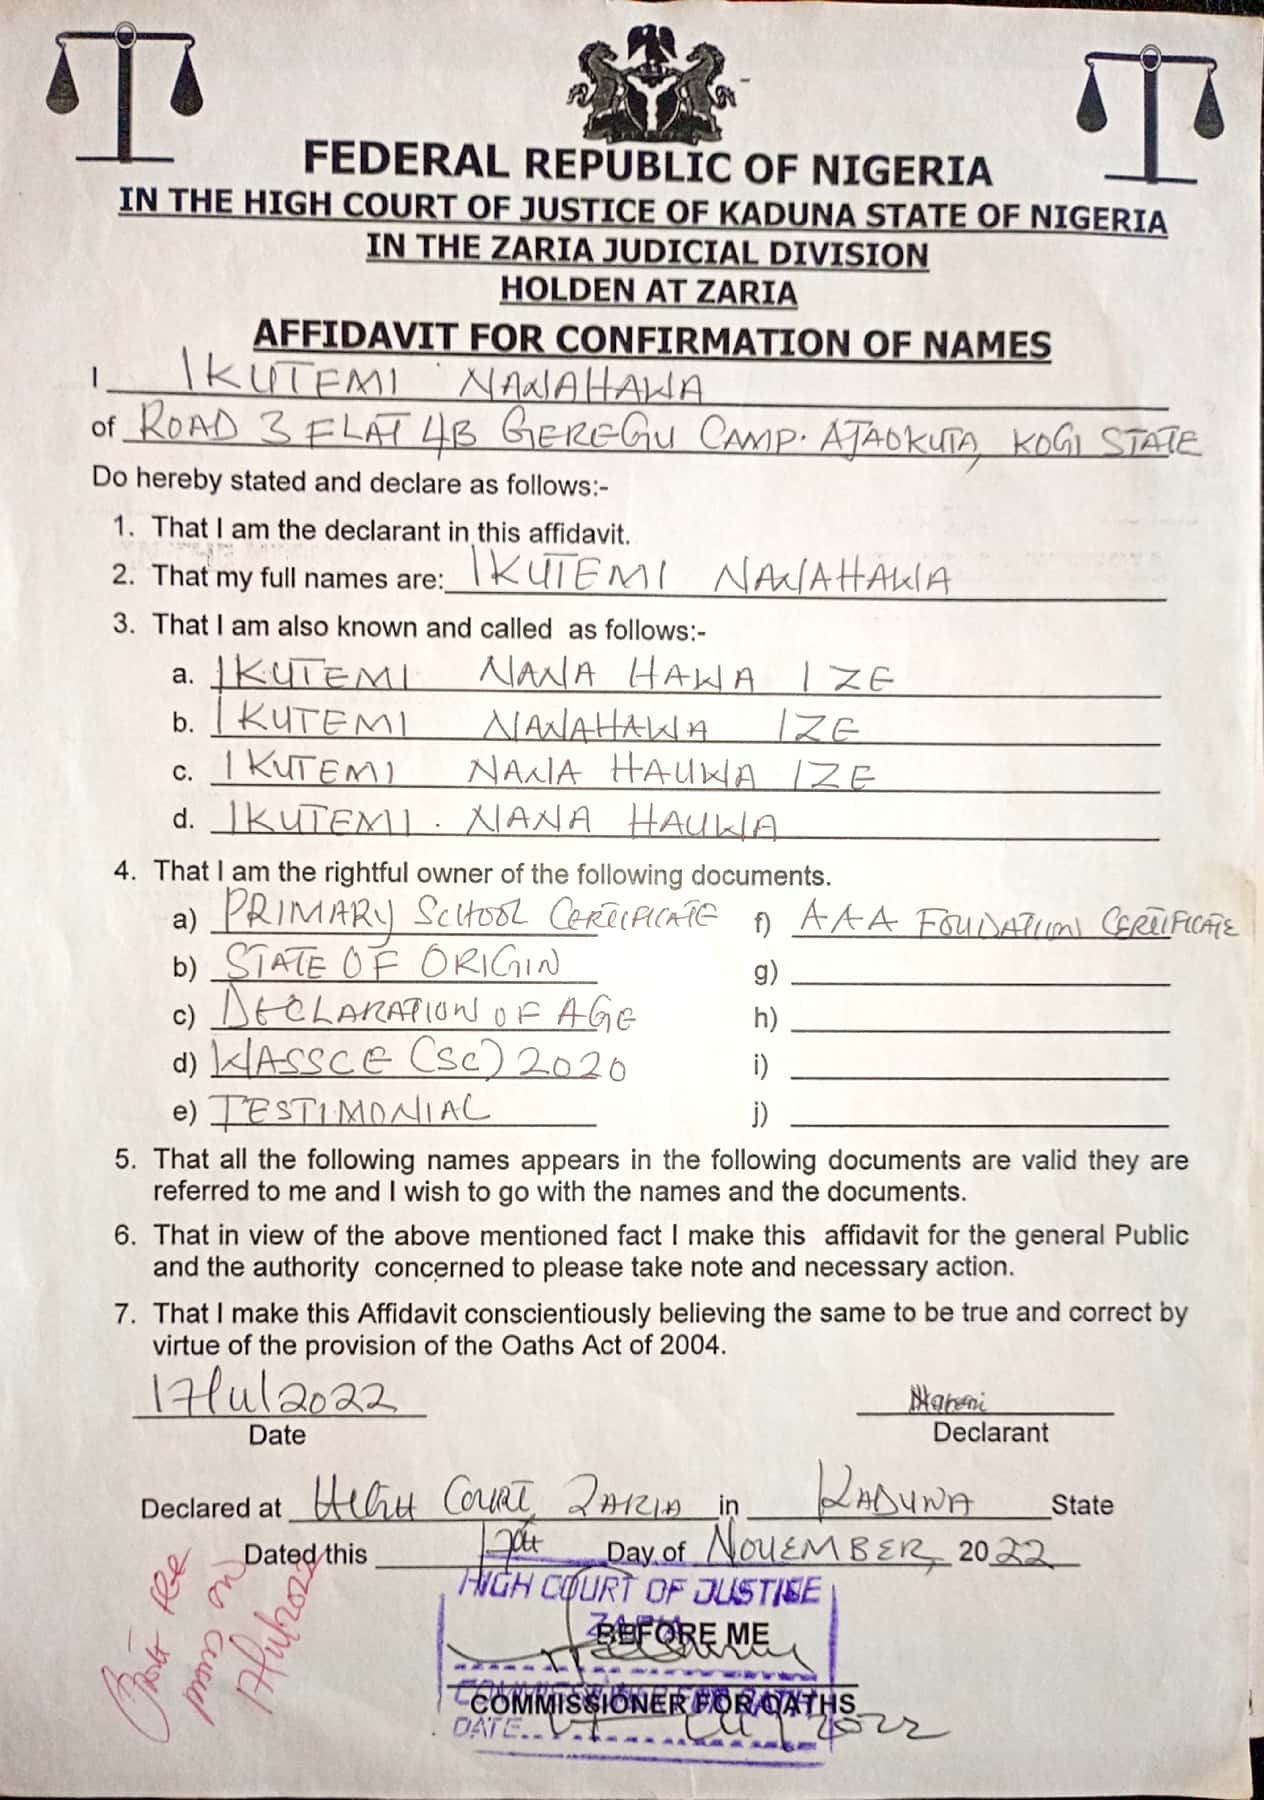 FEDERAL REPUBLIC OF NIGERIA
IN THE HIGH COURT OF JUSTICE OF KADUNA STATE OF NIGERIA
IN THE ZARIA JUDICIAL DIVISION
HOLDEN AT ZARIA
AFFIDAVIT FOR CONFIRMATION OF NAMES
I IKUTEMI NANAHAWA
of ROAD 3 FLAT 4B GEREGU CAMP. AJAOKUTA, KOGI STATE
Do hereby stated and declare as follows:-
1. That I am the declarant in this affidavit.
2. That my full names are: IKUTEMI NANAHAWA
3. That I am also known and called as follows:-
a. IKUTEMI NANA HAWA IZE
b. IKUTEMI NANAHAWA IZE
c. IKUTEMI NANA HAUWA IZE
d. IKUTEMI. NANA HAUWA
4. That I am the rightful owner of the following documents.
a) PRIMARY SCHOOL CERTIFICATE f) AAA FOUNDATION CERTIFICATE
b) STATE OF ORIGIN g)
c) DECLARATION OF AGE h)
d) WASSCE (SC) 2020 i)
e) TESTIMONIAL j)
5. That all the following names appears in the following documents are valid they are
referred to me and I wish to go with the names and the documents.
6. That in view of the above mentioned fact I make this affidavit for the general Public
and the authority concerned to please take note and necessary action.
7. That I make this Affidavit conscientiously believing the same to be true and correct by
virtue of the provision of the Oaths Act of 2004.
17/11/2022
Date Declarant
Declared at HIGH COURT ZARIA in KADUNA State
Dated this 17th Day of NOVEMBER, 2022
HIGH COURT OF JUSTICE
ZARIA
BEFORE ME
COMMISSIONER FOR OATHS
DATE 17/11/2022
on
17/11/2022